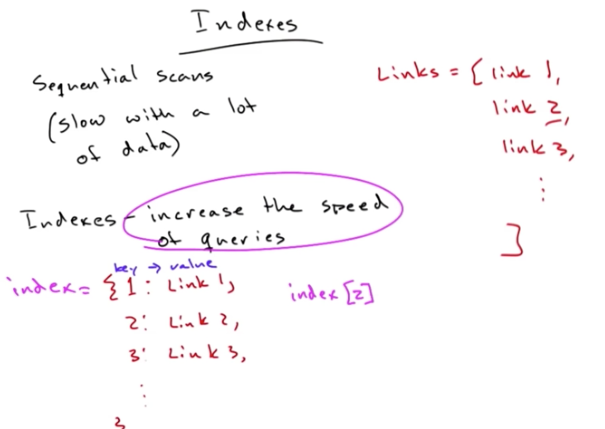 Indexes
Sequential scans
(slow with a lot
of data)
Links = [ link 1,
link 2,
link 3,
⋮
]
Indexes - increase the speed
of queries
key → value
index = { 1: Link 1,
2: Link 2,
3: Link 3,
⋮
}
index [2]